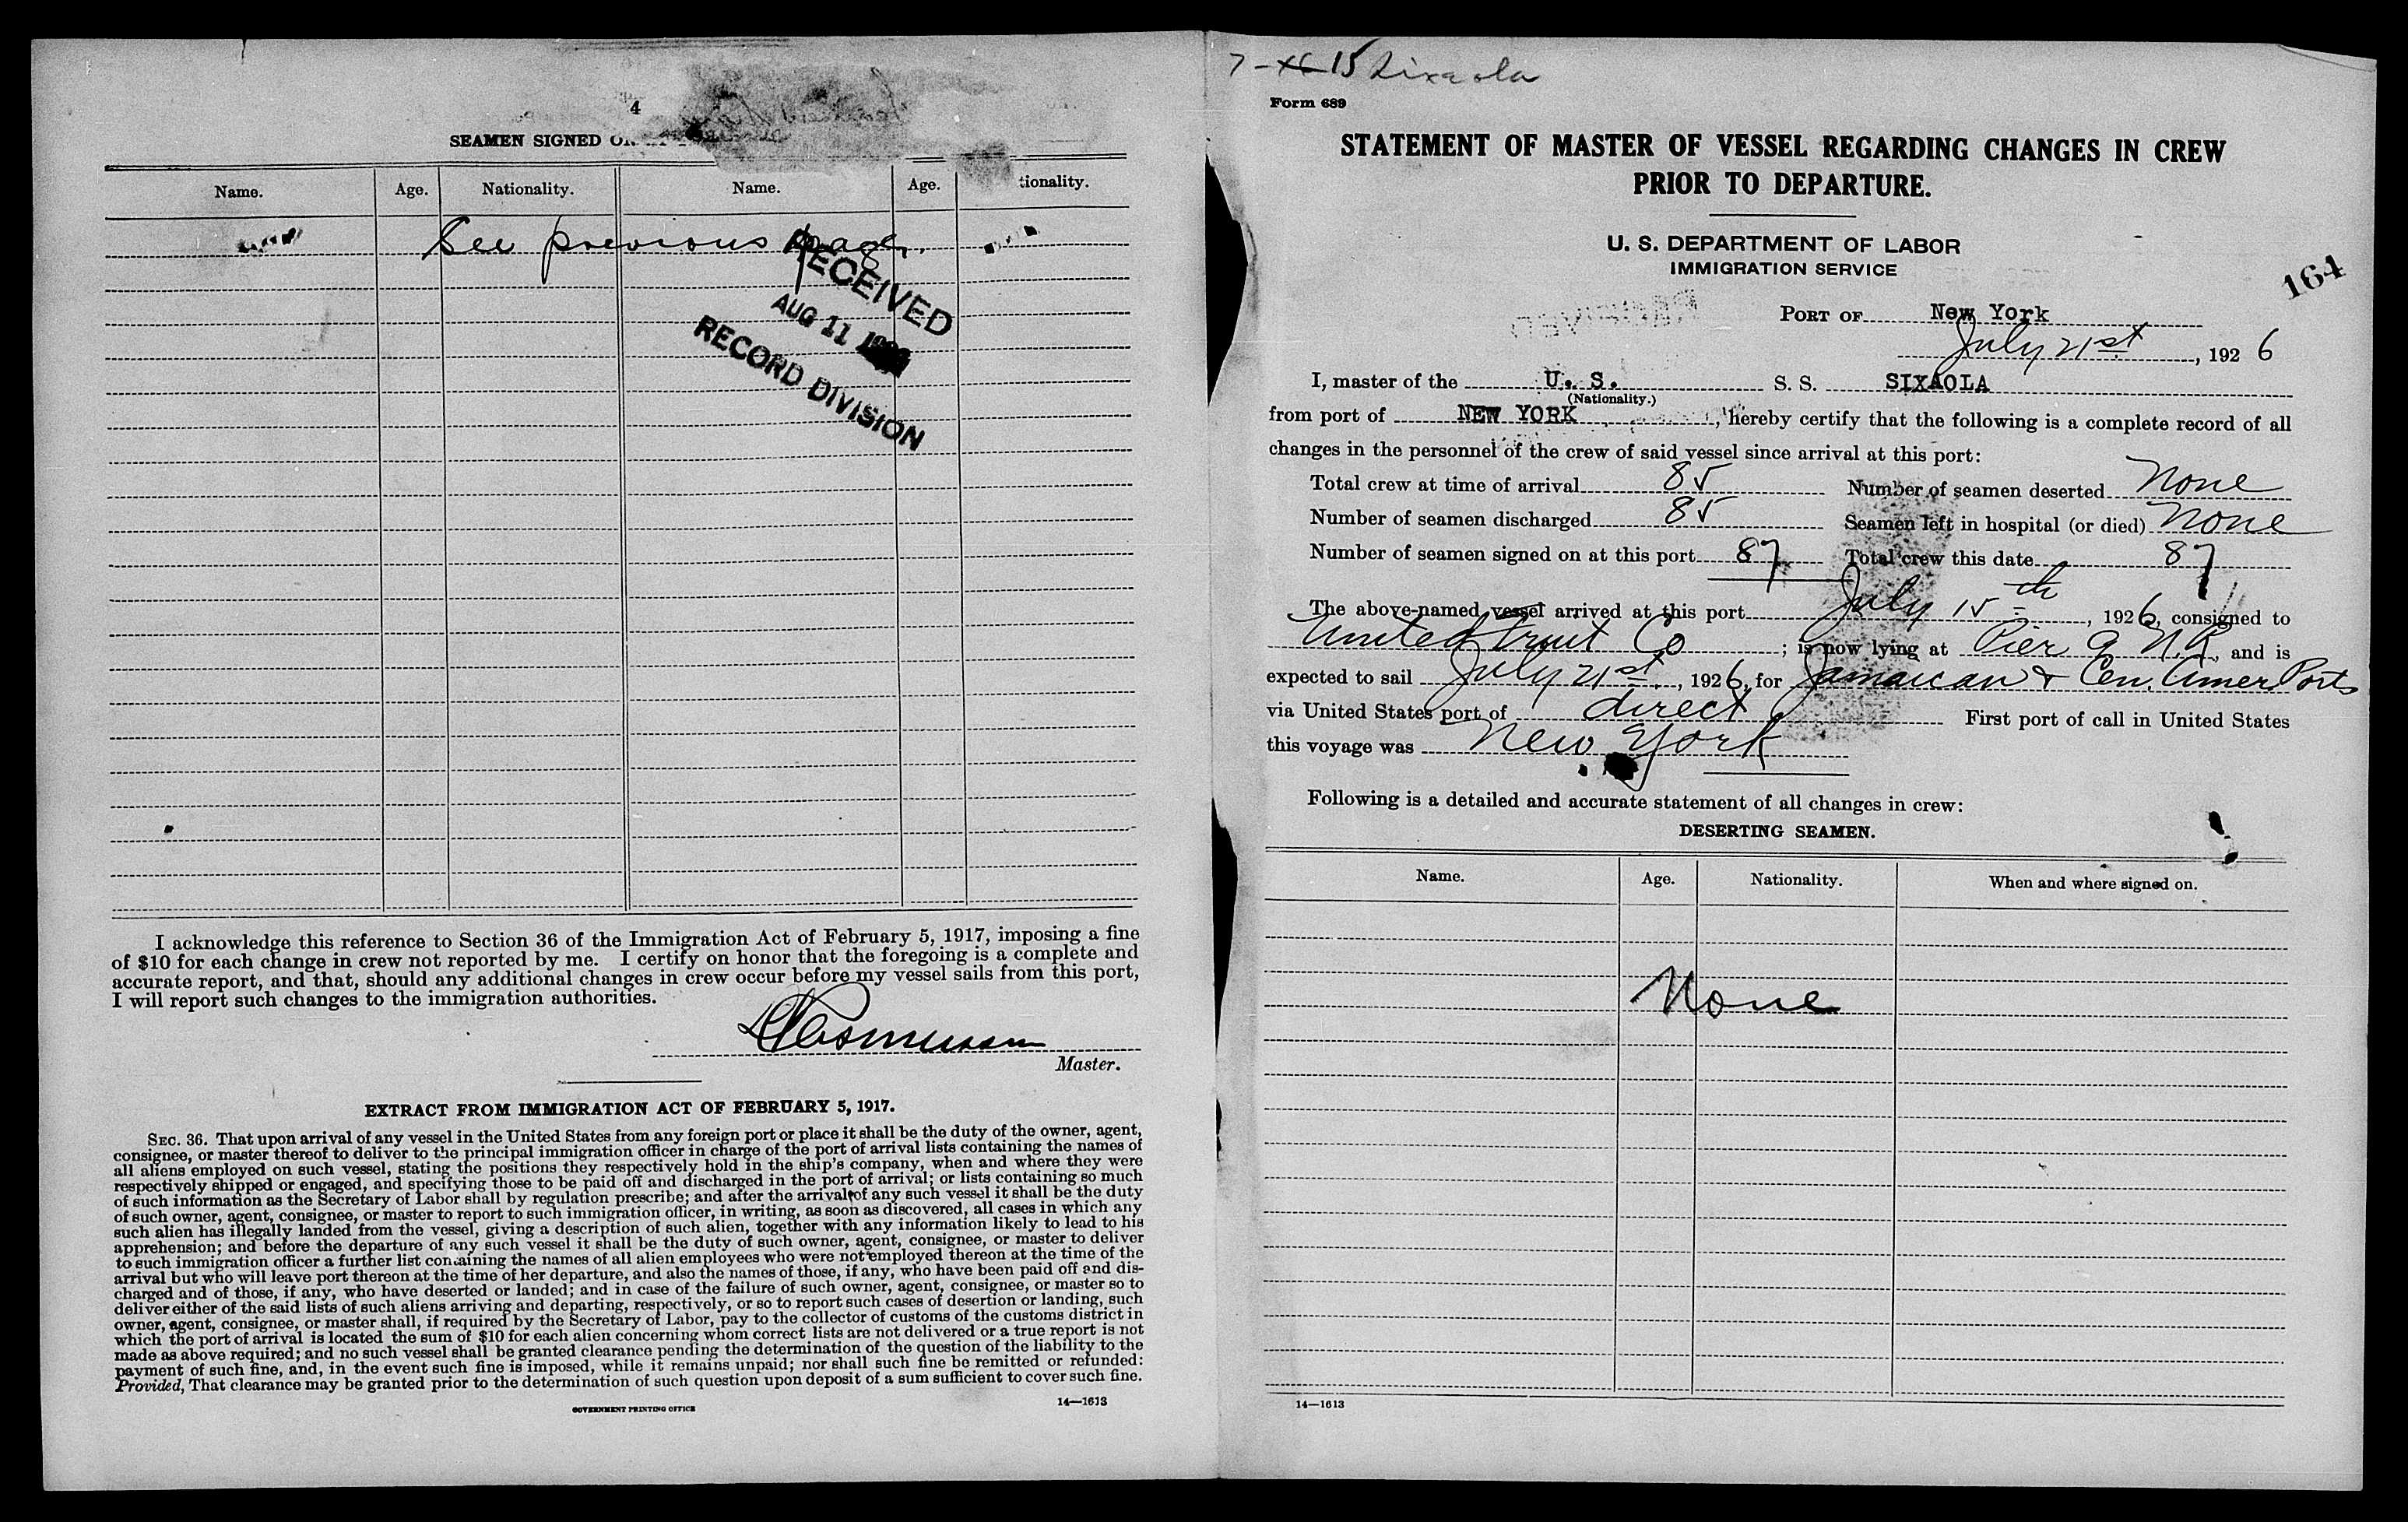 4
SEAMEN SIGNED
Name. Age. Nationality. Name. Age. tionality.
See previous page.
RECEIVED
AUG 11
RECORD DIVISION
I acknowledge this reference to Section 36 of the Immigration Act of February 5, 1917, imposing a fine
of $10 for each change in crew not reported by me. I certify on honor that the foregoing is a complete and
accurate report, and that, should any additional changes in crew occur before my vessel sails from this port,
I will report such changes to the immigration authorities.
Master.
EXTRACT FROM IMMIGRATION ACT OF FEBRUARY 5, 1917.
SEC. 36. That upon arrival of any vessel in the United States from any foreign port or place it shall be the duty of the owner, agent,
consignee, or master thereof to deliver to the principal immigration officer in charge of the port of arrival lists containing the names of
all aliens employed on such vessel, stating the positions they respectively hold in the ship's company, when and where they were
respectively shipped or engaged, and specifying those to be paid off and discharged in the port of arrival; or lists containing so much
of such information as the Secretary of Labor shall by regulation prescribe; and after the arrival of any such vessel it shall be the duty
of such owner, agent, consignee, or master to report to such immigration officer, in writing, as soon as discovered, all cases in which any
such alien has illegally landed from the vessel, giving a description of such alien, together with any information likely to lead to his
apprehension; and before the departure of any such vessel it shall be the duty of such owner, agent, consignee, or master to deliver
to such immigration officer a further list containing the names of all alien employees who were not employed thereon at the time of the
arrival but who will leave port thereon at the time of her departure, and also the names of those, if any, who have been paid off and dis-
charged and of those, if any, who have deserted or landed; and in case of the failure of such owner, agent, consignee, or master so to
deliver either of the said lists of such aliens arriving and departing, respectively, or so to report such cases of desertion or landing, such
owner, agent, consignee, or master shall, if required by the Secretary of Labor, pay to the collector of customs of the customs district in
which the port of arrival is located the sum of $10 for each alien concerning whom correct lists are not delivered or a true report is not
made as above required; and no such vessel shall be granted clearance pending the determination of the question of the liability to the
payment of such fine, and, in the event such fine is imposed, while it remains unpaid; nor shall such fine be remitted or refunded:
Provided, That clearance may be granted prior to the determination of such question upon deposit of a sum sufficient to cover such fine.
GOVERNMENT PRINTING OFFICE
14—1613
7- 15 Sixaola
Form 689
STATEMENT OF MASTER OF VESSEL REGARDING CHANGES IN CREW
PRIOR TO DEPARTURE.
U. S. DEPARTMENT OF LABOR
IMMIGRATION SERVICE
164
PORT OF New York
July 21st, 1926
I, master of the U. S. S. S. SIXAOLA
(Nationality.)
from port of NEW YORK, hereby certify that the following is a complete record of all
changes in the personnel of the crew of said vessel since arrival at this port:
Total crew at time of arrival 85 Number of seamen deserted None
Number of seamen discharged 85 Seamen left in hospital (or died) None
Number of seamen signed on at this port 87 Total crew this date 87
The above-named vessel arrived at this port July 15th, 1926, consigned to
United Fruit Co; is now lying at Pier 9 N.R., and is
expected to sail July 21st, 1926, for Jamaican & Cen. Amer. Ports
via United States port of direct First port of call in United States
this voyage was New York
Following is a detailed and accurate statement of all changes in crew:
DESERTING SEAMEN.
Name. Age. Nationality. When and where signed on.
None
14—1613